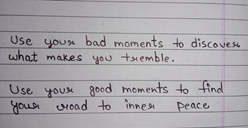 Use your bad moments to discover
what makes you tremble.
Use your good moments to find
your road to inner peace